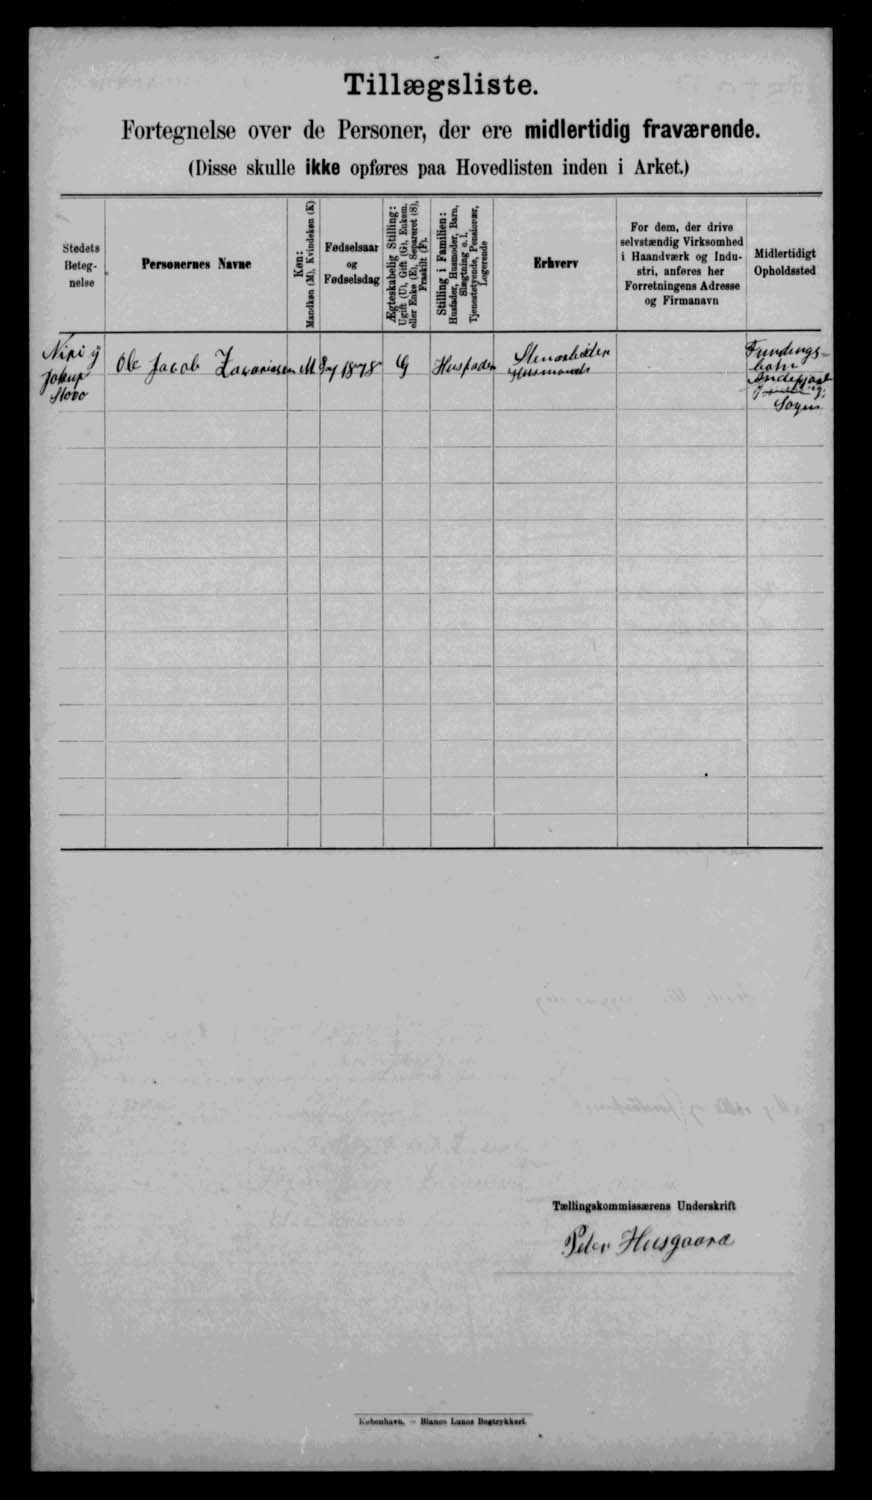 Tillægsliste.
Fortegnelse over de Personer, der ere midlertidig fraværende.
(Disse skulle ikke opføres paa Hovedlisten inden i Arket.)
Stedets
Beteg-
nelse
Personernes Navne
Køn:
Mandkøn (M), Kvindekøn (K)
Fødselsaar
og
Fødselsdag
Ægteskabelig Stilling:
Ugift (U), Gift (G), Enkem.
eller Enke (E), Separeret (S),
Fraskilt (F).
Stilling i Familien:
Husfader, Husmoder, Barn,
Slægtning o. l.
Tjenestetyende, Pensionær,
Logerende
Erhverv
For dem, der drive
selvstændig Virksomhed
i Haandværk og Indu-
stri, anføres her
Forretningens Adresse
og Firmanavn
Midlertidigt
Opholdssted
Ole Jacob Zakariasen
M
1878
G
Husfader
Husmand
Fundings-
Sogn
Tællingskommissærens Underskrift
Peter Husgaard
København. – Bianco Lunos Bogtrykkeri.